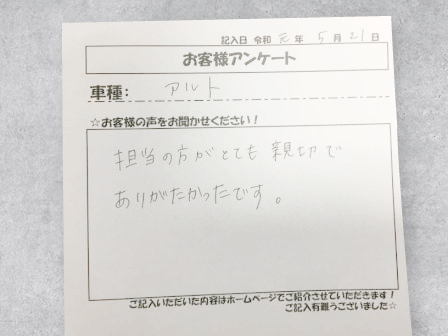 記入日 令和 元 年 5 月 21 日
お客様アンケート
車種: アルト
☆お客様の声をお聞かせください!
担当の方がとても親切で
ありがたかったです。
ご記入いただいた内容はホームページでご紹介させていただきます!
ご記入有難うございました☆